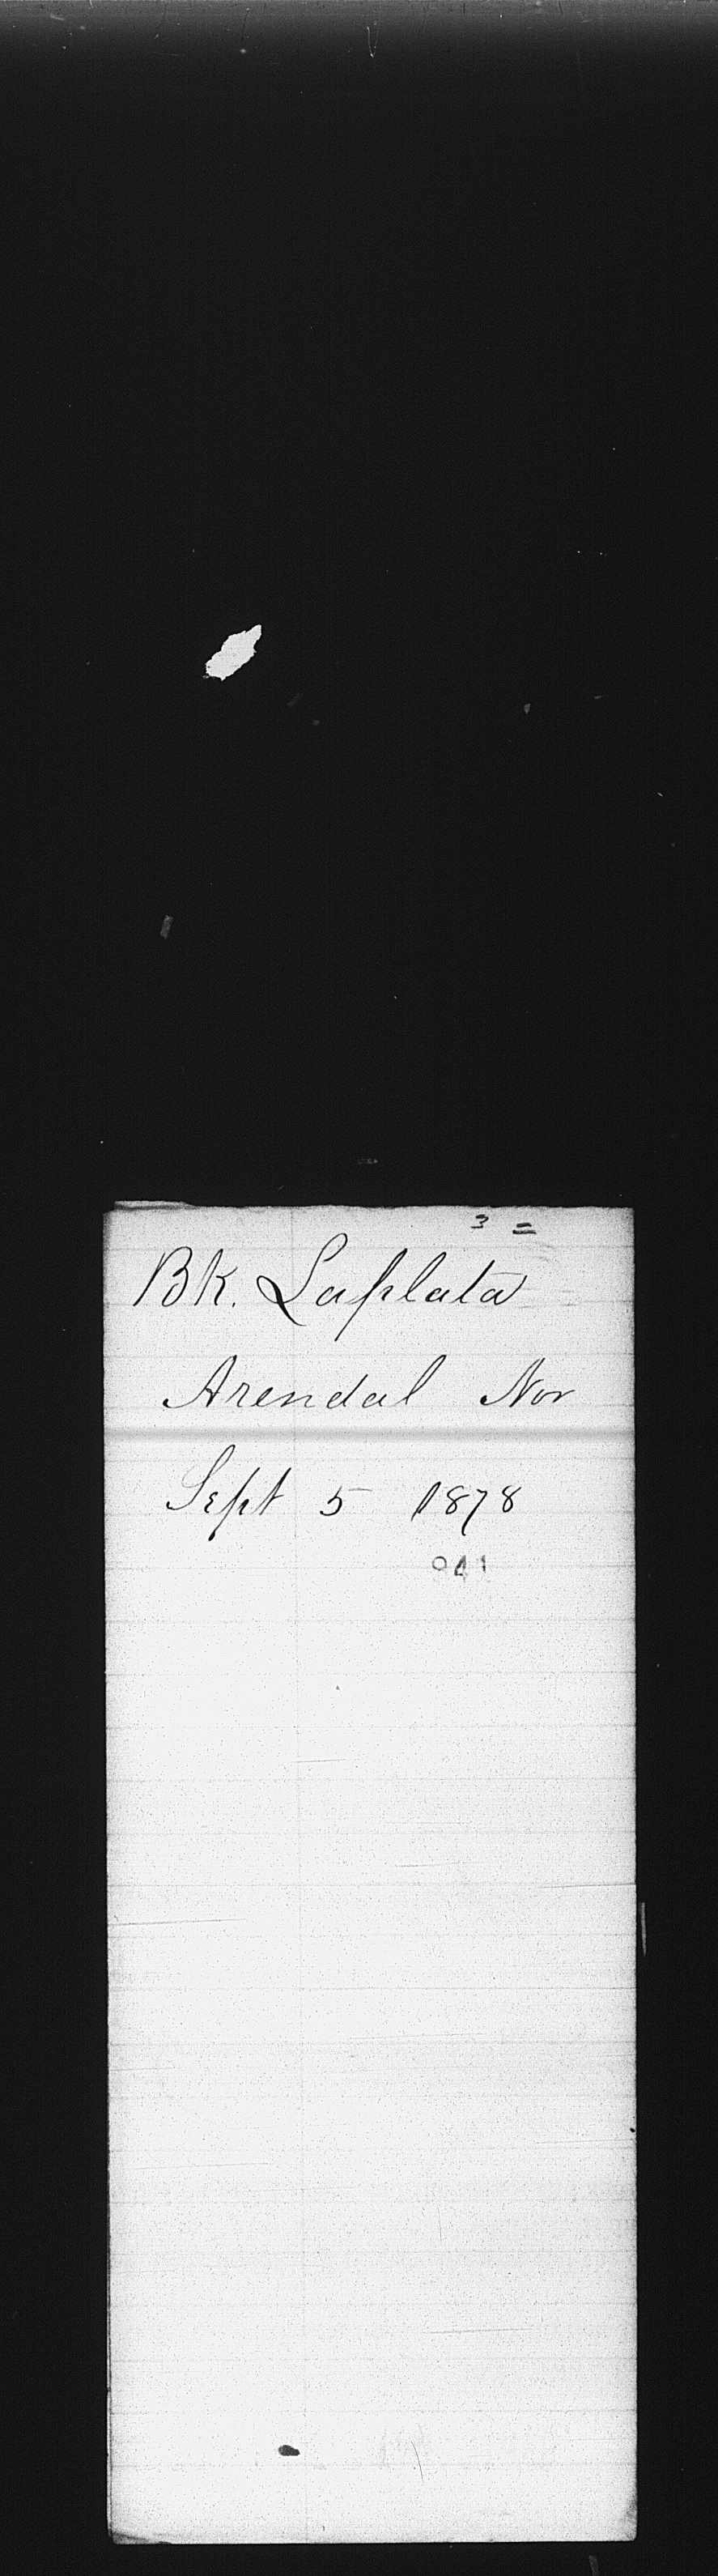 3 =
Bk. Laplata
Arendal Nor
Sept 5 1878
041